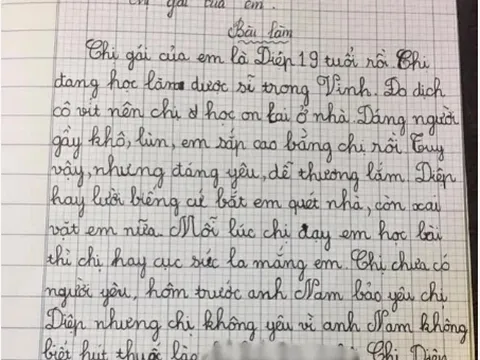 chị gái của em.
Bài làm
Chị gái của em là Diệp 19 tuổi rồi. Chị
đang học làm dược sĩ trong Vinh. Do dịch
cô vít nên chị học on lai ở nhà. Dáng người
gầy khô, lùn, em sắp cao bằng chị rồi. Tuy
vậy, nhưng đáng yêu, dễ thương lắm. Diệp
hay lười biếng cứ bắt em quét nhà, còn xai
vặt em nữa. Mỗi lúc chị dạy em học bài
thì chị hay cục sức la mắng em. Chị chưa có
người yêu, hôm trước anh Nam bảo yêu chị
Diệp nhưng chị không yêu vì anh Nam không
biết hút thuốc lào Chị Diệp